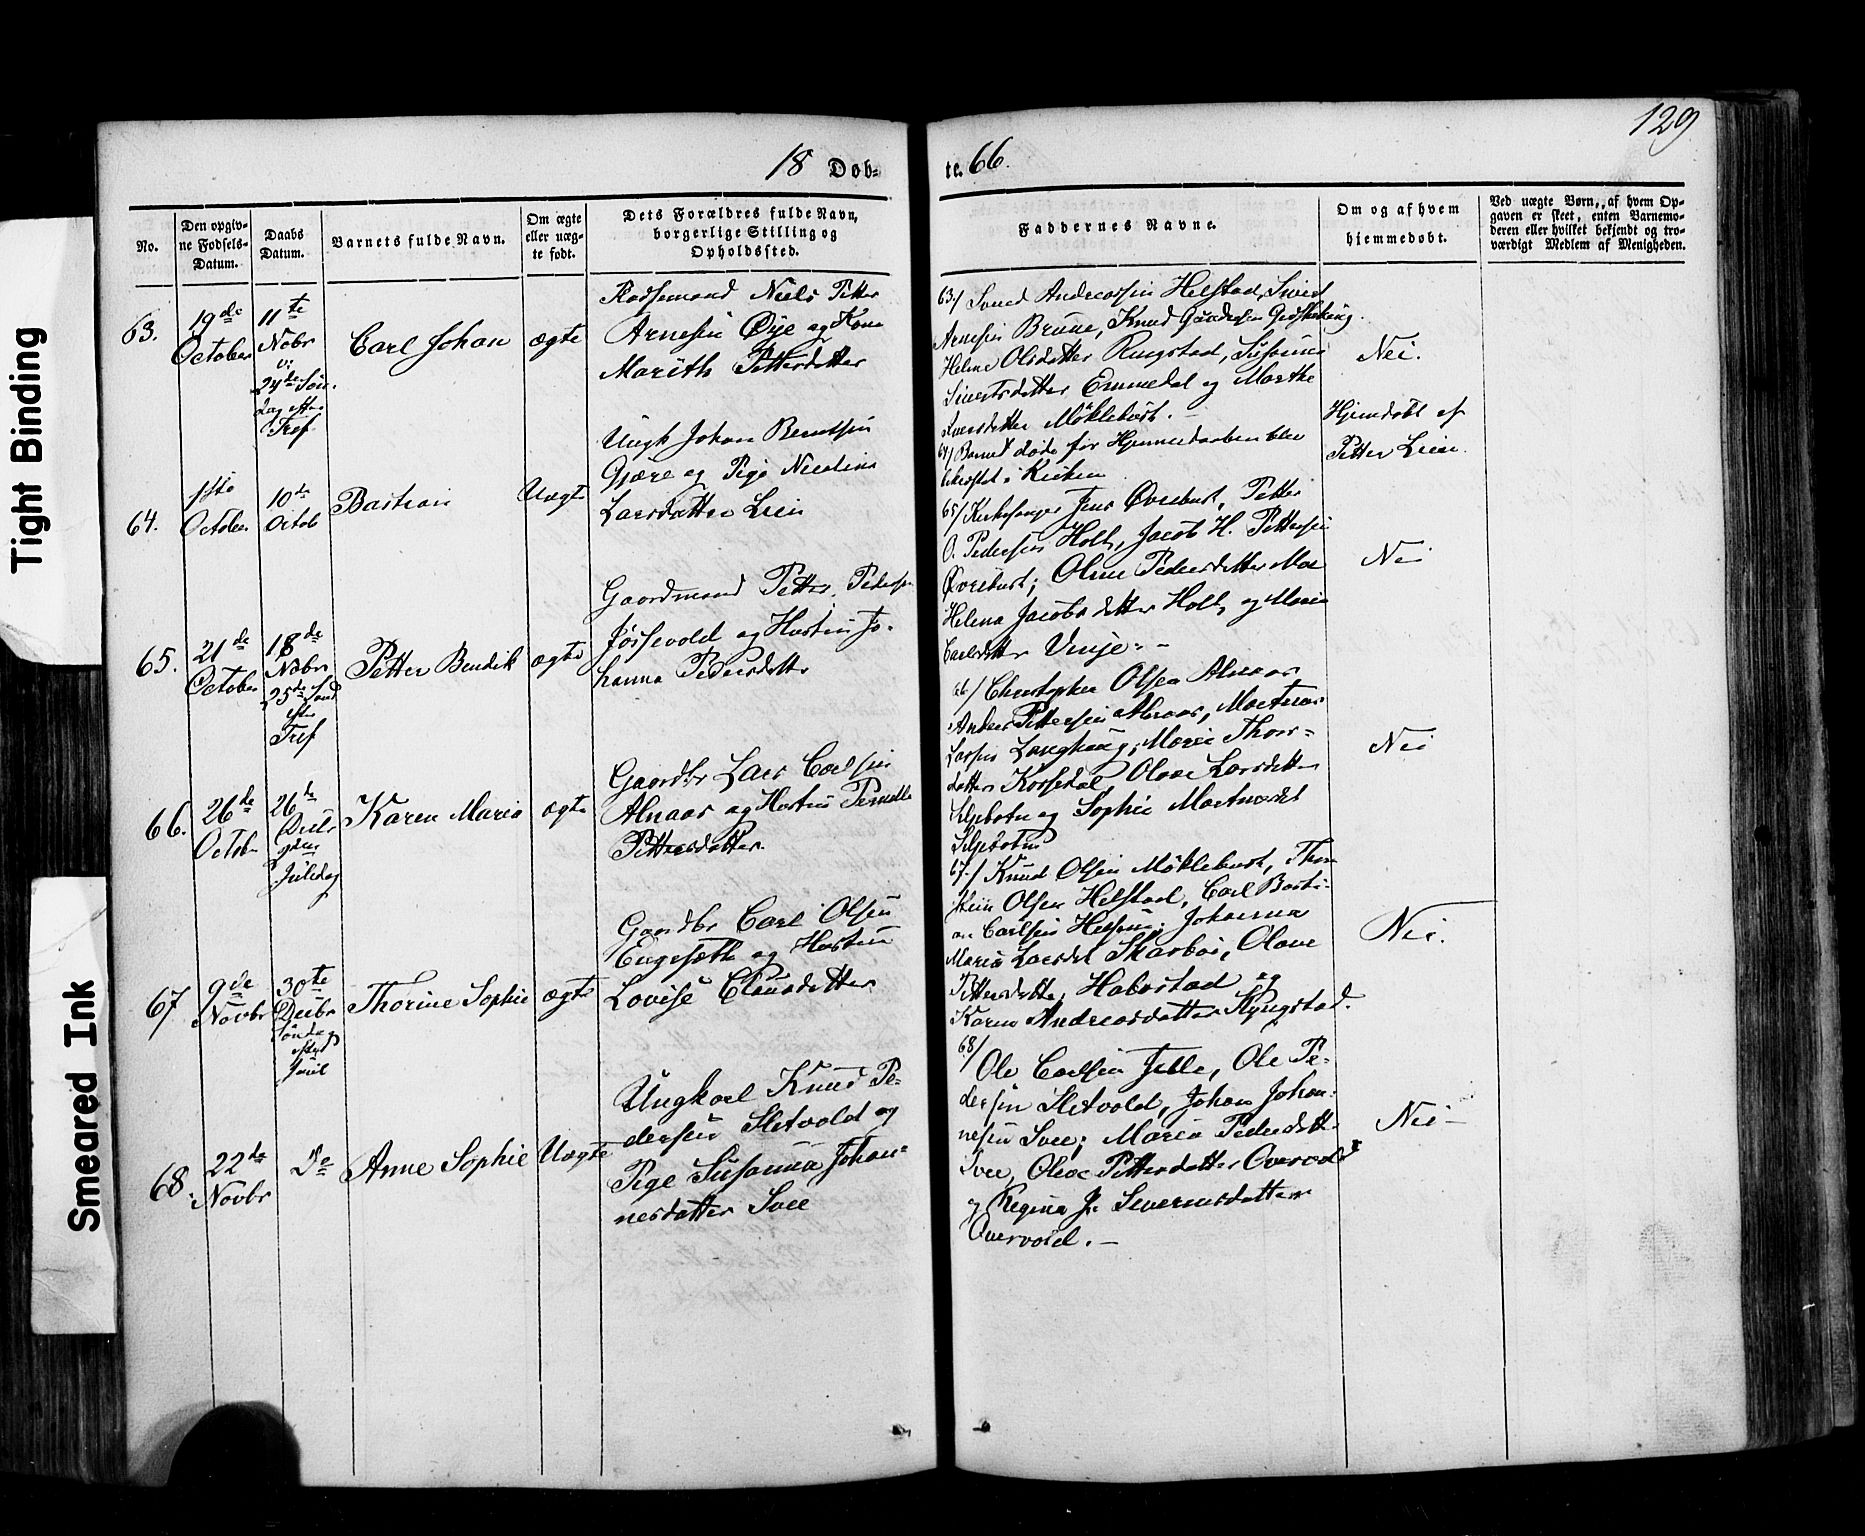 129
18 Døb-
te. 66.
No.
Den opgiv-
ne Fødsels-
Datum.
Daabs
Datum.
Barnets fulde Navn.
Om ægte
eller uæg-
te født.
Dets Forældres fulde Navn,
borgerlige Stilling og
Opholdssted.
Faddernes Navne.
Om og af hvem
hjemmedøbt.
Ved uægte Børn, af hvem Op-
gaven er skeet, enten Barnemo-
deren eller hvilket bekjendt og tro-
værdigt Medlem af Menigheden.
63.
19de
October
11te
Nobr
24de Søn-
dag efter
Tref
Carl Johan
ægte
Niels Petter
Arnesen Øye og Kone
Marith Pettersdatter
63/ Svend Andreassen Helstad, Sivert
Arnesen Brune, Knud
Helene Olsdatter Ringstad, Susanna
Sivertsdatter Emmedal og Marthe
Iversdatter Møklebust.-
Nei.
64.
1ste
October
10de
Octob
Bastian
Uægte
Ungk Johan Berntsen
Gjære og Pige Nicoline
Larsdatter Lein
64/ Barnet døde før Hjemmedaaben blev
bekræftet i Kirken
Hjemdøbt af
Petter Leine.
65.
21de
October
18de
Nobr
25de Sønd
efter
Tref
Petter Bendik
ægte
Gaardmand Petter Peders
og Hustru Jo-
hanna Pedersdatter
65/ Kirkesanger Jens Øvrebust, Petter
O. Pedersen Holt, Jacob H. Pettersen
Øvrebust; Oline Pedersdatter Moe
Helena Jacobsdatter Holt, og Maria
Carlsdatter Vinje.-
Nei
66.
26de
Octob
26de
Decbr
2den
Juledag
Karen Maria
ægte
Gaardbr Lars Carlsen
Alnaas og Hustru Pernille
Pettersdatter.
66/ Christopher Olsen Alnaas
Anders Pettersen Alnaas, Martinus
Larsen Langhaug; Maria Thors-
datter Korsedal, Olave Larsdatter
og Sophie Martinusdt
Nei
67
9de
Novbr
30te
Decbr
Søndag
efter
Juul
Thorine Sophie
ægte
Gaardbr Carl Olsen
Engesæth og Hustru
Lovise Clausdatter
67/ Knud Olsen Møklebust, Thor-
Olsen Helstad, Carl Basti-
an Carlsen; Johanna
Maria Larsdt Skarbø, Olave
Pettersdatter Habostad og
Karen Andreasdatter Ryngstad.
Nei.
68.
22de
Novbr
Do
Anne Sophie
Uægte
Ungkarl Knud Pe-
dersen Sletvold og
Pige Susanna Johan-
nesdatter Svee
68/
Ole Carlsen, Ole Pe-
dersen Sletvold, Johan Johan-
nesen Svee; Maria Pedersdatt.
Svee, Olive Pettersdatter Overvold
og Regina J. Severinsdatter
Overvold.-
Nei-
Tight Binding
Smeared Ink